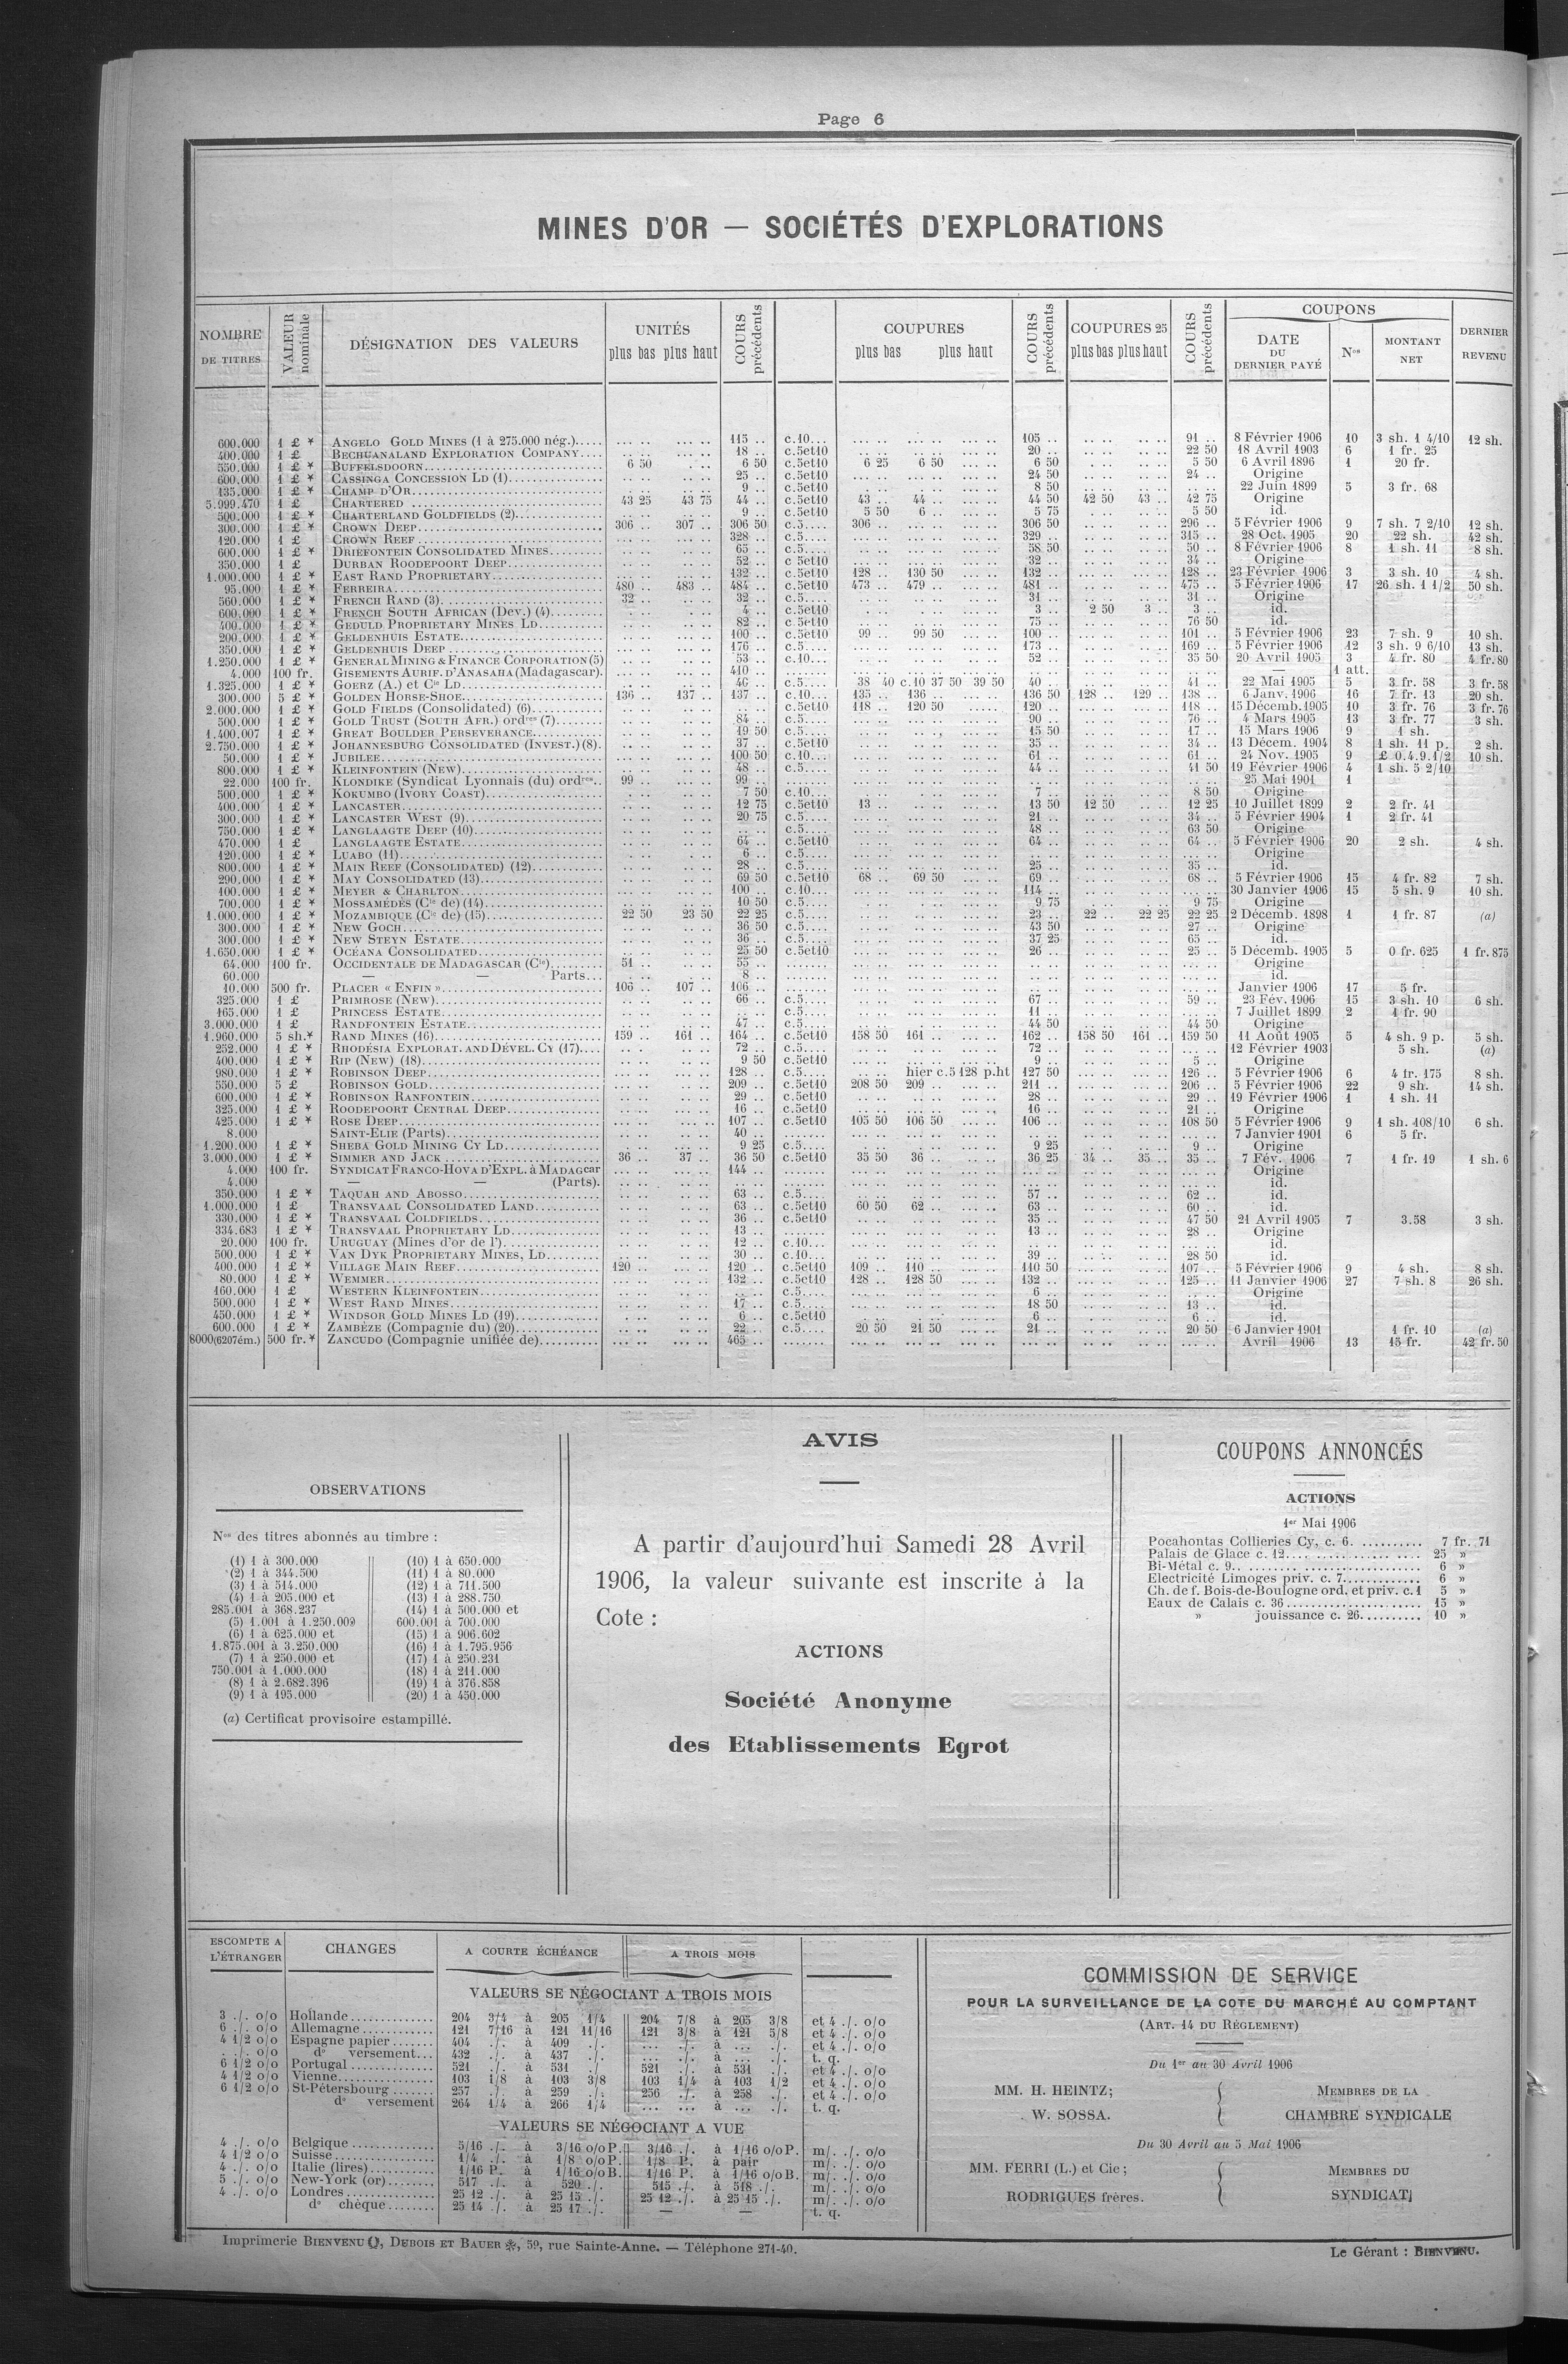 Page 6
MINES D'OR — SOCIÉTÉS D'EXPLORATIONS
NOMBRE DE TITRES
VALEUR nominale
DÉSIGNATION DES VALEURS
UNITÉS
plus bas plus haut
COURS précédents
COUPURES
plus bas plus haut
COURS précédents
COUPURES 25
plus bas plus haut
COURS précédents
COUPONS
DATE DU DERNIER PAYÉ
Nos
MONTANT NET
DERNIER REVENU
600.000 1 £ * ANGELO GOLD MINES (1 à 275.000 nég.)..... 115 .. c.10... 105 .. 91 .. 8 Février 1906 10 3 sh. 1 4/10 12 sh.
400.000 1 £ BECHUANALAND EXPLORATION COMPANY.... 18 .. c.5et10 20 .. 22 50 18 Avril 1903 6 1 fr. 25
550.000 1 £ * BUFFELSDOORN 6 50 6 50 c.5et10 6 25 6 50 6 50 5 50 6 Avril 1896 1 20 fr.
600.000 1 £ * CASSINGA CONCESSION LD (1) 25 .. c.5et10 24 50 24 .. Origine
135.000 1 £ * CHAMP D'OR 9 .. c.5et10 8 50 22 Juin 1899 5 3 fr. 68
5.999.470 1 £ CHARTERED 43 25 43 75 44 .. c.5et10 43 .. 44 .. 44 50 42 50 43 .. 42 75 Origine
500.000 1 £ * CHARTERLAND GOLDFIELDS (2) 9 .. c.5et10 5 50 6 .. 5 75 5 50 id.
300.000 1 £ * CROWN DEEP 306 .. 307 .. 306 50 c.5.... 306 .. 306 50 296 .. 5 Février 1906 9 7 sh. 7 2/10 12 sh.
120.000 1 £ CROWN REEF 328 .. c.5.... 329 .. 315 .. 28 Oct. 1905 20 22 sh. 42 sh.
600.000 1 £ * DRIEFONTEIN CONSOLIDATED MINES 65 .. c.5.... 58 50 50 .. 8 Février 1906 8 1 sh. 11 8 sh.
350.000 1 £ DURBAN ROODEPOORT DEEP 52 .. c.5et10 32 .. 34 .. Origine
1.000.000 1 £ * EAST RAND PROPRIETARY 132 .. c.5et10 128 .. 130 50 132 .. 128 .. 23 Février 1906 3 3 sh. 10 4 sh.
95.000 1 £ * FERREIRA 480 .. 483 .. 484 .. c.5et10 473 .. 479 .. 481 .. 475 .. 5 Février 1906 17 26 sh. 1 1/2 50 sh.
560.000 1 £ * FRENCH RAND (3) 32 .. 32 .. c.5.... 31 .. 31 .. Origine
600.000 1 £ * FRENCH SOUTH AFRICAN (Dev.) (4) 4 .. c.5et10 3 .. 2 50 3 .. 3 .. id.
400.000 1 £ * GEDULD PROPRIETARY MINES LD 82 .. c.5et10 75 .. 76 50 id.
200.000 1 £ * GELDENHUIS ESTATE 100 .. c.5et10 99 .. 99 50 100 .. 101 .. 5 Février 1906 23 7 sh. 9 10 sh.
350.000 1 £ * GELDENHUIS DEEP 176 .. c.5.... 173 .. 169 .. 5 Février 1906 12 3 sh. 9 6/10 13 sh.
1.250.000 1 £ * GENERAL MINING & FINANCE CORPORATION (5) 53 .. c.10... 52 .. 35 50 20 Avril 1905 3 4 fr. 80 4 fr. 80
4.000 100 fr. GISEMENTS AURIF. D'ANASAHA (Madagascar). 410 .. — 1 att.
1.325.000 1 £ * GOERZ (A.) et Cie LD 40 .. c.5.... 38 40 c.10 37 50 39 50 40 .. 41 .. 22 Mai 1905 5 3 fr. 58 3 fr. 58
300.000 5 £ * GOLDEN HORSE-SHOE 136 .. 137 .. 137 .. c.10... 135 .. 136 136 50 128 .. 129 .. 138 .. 6 Janv. 1906 16 7 fr. 13 20 sh.
2.000.000 1 £ * GOLD FIELDS (Consolidated) (6) c.5et10 118 .. 120 50 120 .. 118 .. 15 Décemb. 1905 10 3 fr. 76 3 fr. 76
500.000 1 £ * GOLD TRUST (SOUTH AFR.) ordres (7) 84 .. c.5.... 90 .. 76 .. 4 Mars 1905 13 3 fr. 77 3 sh.
1.400.007 1 £ * GREAT BOULDER PERSEVERANCE 19 50 c.5.... 15 50 17 .. 15 Mars 1906 9 1 sh.
2.750.000 1 £ * JOHANNESBURG CONSOLIDATED (INVEST.) (8). 37 .. c.5et10 35 .. 34 .. 13 Décem. 1904 8 1 sh. 11 p. 2 sh.
50.000 1 £ * JUBILEE 100 50 c.10... 61 .. 61 .. 24 Nov. 1905 9 £ 0.4.9.1/2 10 sh.
800.000 1 £ * KLEINFONTEIN (NEW) 48 .. c.5.... 44 .. 41 50 19 Février 1906 4 1 sh. 5 2/10
22.000 100 fr. KLONDIKE (Syndicat Lyonnais (du) ordres.. 99 .. 99 .. 25 Mai 1901 1
500.000 1 £ * KOKUMBO (IVORY COAST) 7 50 c.10... 7 .. 8 50 Origine
400.000 1 £ * LANCASTER 12 75 c.5et10 13 .. 13 50 12 50 12 25 10 Juillet 1899 2 2 fr. 41
300.000 1 £ * LANCASTER WEST (9) 20 75 c.5.... 21 .. 34 .. 5 Février 1904 1 2 fr. 41
750.000 1 £ * LANGLAAGTE DEEP (10) c.5.... 48 .. 63 50 Origine
470.000 1 £ LANGLAAGTE ESTATE 64 .. c.5et10 64 .. 64 .. 5 Février 1906 20 2 sh. 4 sh.
120.000 1 £ * LUABO (11) 6 .. c.5.... Origine
800.000 1 £ * MAIN REEF (CONSOLIDATED) (12) 28 .. c.5.... 25 .. 35 .. id.
290.000 1 £ * MAY CONSOLIDATED (13) 69 50 c.5et10 68 .. 69 50 69 .. 68 .. 5 Février 1906 15 4 fr. 82 7 sh.
100.000 1 £ * MEYER & CHARLTON 100 .. c.10... 114 .. 30 Janvier 1906 15 5 sh. 9 10 sh.
700.000 1 £ * MOSSAMÉDÈS (Cie de) (14) 10 50 c.5.... 9 75 9 75 Origine
1.000.000 1 £ * MOZAMBIQUE (Cie de) (15) 22 50 23 50 22 25 c.5.... 23 .. 22 .. 22 25 22 25 2 Décemb. 1898 1 1 fr. 87 (a)
300.000 1 £ * NEW GOCH 36 50 c.5.... 43 50 27 .. Origine
300.000 1 £ * NEW STEYN ESTATE 36 .. c.5.... 37 25 65 .. id.
1.650.000 1 £ * OCEANA CONSOLIDATED 25 50 c.5et10 26 .. 25 .. 5 Décemb. 1905 5 0 fr. 625 1 fr. 875
64.000 100 fr. OCCIDENTALE DE MADAGASCAR (Cie) 51 .. 55 .. Origine
60.000 — — Parts... 8 .. id.
10.000 500 fr. PLACER « ENFIN » 106 .. 107 .. 106 .. Janvier 1906 17 5 fr.
325.000 1 £ PRIMROSE (NEW) 66 .. c.5.... 67 .. 59 .. 23 Fév. 1906 15 3 sh. 10 6 sh.
165.000 1 £ PRINCESS ESTATE c.5.... 11 .. 7 Juillet 1899 2 1 fr. 90
3.000.000 1 £ RANDFONTEIN ESTATE 47 .. c.5.... 44 50 44 50 Origine
1.960.000 5 sh.* RAND MINES (16) 159 .. 161 .. 164 .. c.5et10 158 50 161 .. 162 .. 158 50 161 .. 159 50 11 Août 1905 5 4 sh. 9 p. 5 sh.
252.000 1 £ * RHODÉSIA EXPLORAT. AND DÉVEL. CY (17).... 72 .. c.5.... 72 .. 12 Février 1903 5 sh. (a)
400.000 1 £ * RIP (NEW) (18) 9 50 c.5et10 9 .. 5 .. Origine
980.000 1 £ * ROBINSON DEEP 128 .. c.5.... hier c.5 128 p.ht 127 50 126 .. 5 Février 1906 6 4 fr. 175 8 sh.
550.000 5 £ ROBINSON GOLD 209 .. c.5et10 208 50 209 .. 211 .. 206 .. 5 Février 1906 22 9 sh. 14 sh.
600.000 1 £ * ROBINSON RANFONTEIN 29 .. c.5et10 28 .. 29 .. 19 Février 1906 1 1 sh. 11
325.000 1 £ * ROODEPOORT CENTRAL DEEP 16 .. c.5et10 16 .. 21 .. Origine
425.000 1 £ * ROSE DEEP 107 .. c.5et10 105 50 106 50 106 .. 108 50 5 Février 1906 9 1 sh. 108/10 6 sh.
8.000 SAINT-ELIE (Parts) 40 .. 7 Janvier 1901 6 5 fr.
1.200.000 1 £ * SHEBA GOLD MINING CY LD 9 25 c.5.... 9 25 9 .. Origine
3.000.000 1 £ * SIMMER AND JACK 36 .. 37 .. 36 50 c.5et10 35 50 36 .. 36 25 34 .. 35 .. 35 .. 7 Fév. 1906 7 1 fr. 19 1 sh. 6
4.000 100 fr. SYNDICAT FRANCO-HOVA D'EXPL. à MADAGcar 144 .. Origine
4.000 — — (Parts). id.
350.000 1 £ * TAQUAH AND ABOSSO 63 .. c.5.... 57 .. 62 .. id.
1.000.000 1 £ TRANSVAAL CONSOLIDATED LAND 63 .. c.5et10 60 50 62 .. 63 .. 60 .. id.
330.000 1 £ * TRANSVAAL COLDFIELDS 36 .. c.5et10 35 .. 47 50 21 Avril 1905 7 3.58 3 sh.
334.683 1 £ * TRANSVAAL PROPRIETARY LD 13 .. 13 .. 28 .. Origine
20.000 100 fr. URUGUAY (Mines d'or de l') 12 .. c.10... id.
500.000 1 £ * VAN DYK PROPRIETARY MINES, LD 30 .. c.10... 39 .. 28 50 id.
400.000 1 £ * VILLAGE MAIN REEF 120 .. 120 .. c.5et10 109 .. 110 .. 110 50 107 .. 5 Février 1906 9 4 sh. 8 sh.
80.000 1 £ * WEMMER 132 .. c.5et10 128 .. 128 50 132 .. 125 .. 11 Janvier 1906 27 7 sh. 8 26 sh.
160.000 1 £ WESTERN KLEINFONTEIN c.5.... 6 .. Origine
500.000 1 £ * WEST RAND MINES 17 .. c.5.... 18 50 13 .. id.
450.000 1 £ * WINDSOR GOLD MINES LD (19) 6 .. c.5et10 6 .. 6 .. id.
600.000 1 £ * ZAMBÈZE (Compagnie du) (20) 22 .. c.5.... 20 50 21 50 21 .. 20 50 6 Janvier 1901 1 fr. 10 (a)
8000(6207ém.) 500 fr.* ZANCUDO (Compagnie unifiée de) 465 .. Avril 1906 13 15 fr. 42 fr. 50
OBSERVATIONS
Nos des titres abonnés au timbre :
(1) 1 à 300.000
(2) 1 à 344.500
(3) 1 à 514.000
(4) 1 à 205.000 et
285.001 à 368.237
(5) 1.001 à 1.250.009
(6) 1 à 625.000 et
1.875.001 à 3.250.000
(7) 1 à 250.000 et
750.001 à 1.000.000
(8) 1 à 2.682.396
(9) 1 à 195.000
(10) 1 à 650.000
(11) 1 à 80.000
(12) 1 à 711.500
(13) 1 à 288.750
(14) 1 à 500.000 et
600.001 à 700.000
(15) 1 à 906.602
(16) 1 à 1.795.956
(17) 1 à 250.231
(18) 1 à 211.000
(19) 1 à 376.858
(20) 1 à 450.000
(a) Certificat provisoire estampillé.
AVIS
A partir d'aujourd'hui Samedi 28 Avril
1906, la valeur suivante est inscrite à la
Cote :
ACTIONS
Société Anonyme
des Etablissements Egrot
COUPONS ANNONCÉS
ACTIONS
1er Mai 1906
Pocahontas Collieries Cy, c. 6. .......... 7 fr. 71
Palais de Glace c. 12 25 »
Bi-Métal c. 9 6 »
Electricité Limoges priv. c. 7 6 »
Ch. de f. Bois-de-Boulogne ord. et priv. c.1 5 »
Eaux de Calais c. 36 15 »
» jouissance c. 26 10 »
ESCOMPTE A L'ÉTRANGER
CHANGES
A COURTE ÉCHÉANCE
A TROIS MOIS
VALEURS SE NÉGOCIANT A TROIS MOIS
3 ./. o/o Hollande 204 3/4 à 205 1/4 204 7/8 à 205 3/8 et 4 ./. o/o
6 ./. o/o Allemagne 121 7/16 à 121 11/16 121 3/8 à 121 5/8 et 4 ./. o/o
4 1/2 o/o Espagne papier 404 ./. à 409 ./. ... ./. à ... ./. et 4 ./. o/o
. ./. o/o do versement... 432 ./. à 437 ./. ... ./. à ... ./. t. q.
6 1/2 o/o Portugal 521 ./. à 531 ./ 521 ./. à 531 ./. et 4 ./. o/o
4 1/2 o/o Vienne 103 1/8 à 103 3/8 103 1/4 à 103 1/2 et 4 ./. o/o
6 1/2 o/o St-Pétersbourg 257 ./. à 259 ./. 256 ./. à 258 ./. et 4 ./. o/o
do versement 264 1/4 à 266 1/4 ... ... à ... ./. t. q.
VALEURS SE NÉGOCIANT A VUE
4 ./. o/o Belgique 5/16 ./. à 3/16 o/o P. 3/16 ./. à 1/16 o/o P. m/. ./. o/o
4 1/2 o/o Suisse 1/4 ./. à 1/8 o/o P. 1/8 P. à pair m/. ./. o/o
4 ./. o/o Italie (lires) 1/16 P. à 1/16 o/o B. 1/16 P. à 1/16 o/o B. m/. ./. o/o
5 ./. o/o New-York (or) 517 ./. à 520 ./. 515 ./. à 518 ./. m/. ./. o/o
4 ./. o/o Londres 25 12 ./. à 25 15 ./. 25 12 ./. à 25 15 ./. m/. ./. o/o
do chèque 25 14 ./. à 25 17 ./. — — t. q.
COMMISSION DE SERVICE
POUR LA SURVEILLANCE DE LA COTE DU MARCHÉ AU COMPTANT
(ART. 14 DU RÈGLEMENT)
Du 1er au 30 Avril 1906
MM. H. HEINTZ;
W. SOSSA.
MEMBRES DE LA
CHAMBRE SYNDICALE
Du 30 Avril au 5 Mai 1906
MM. FERRI (L.) et Cie;
RODRIGUES frères.
MEMBRES DU
SYNDICAT
Imprimerie BIENVENU, DUBOIS ET BAUER, 59, rue Sainte-Anne. — Téléphone 271-40.
Le Gérant : BIENVENU.